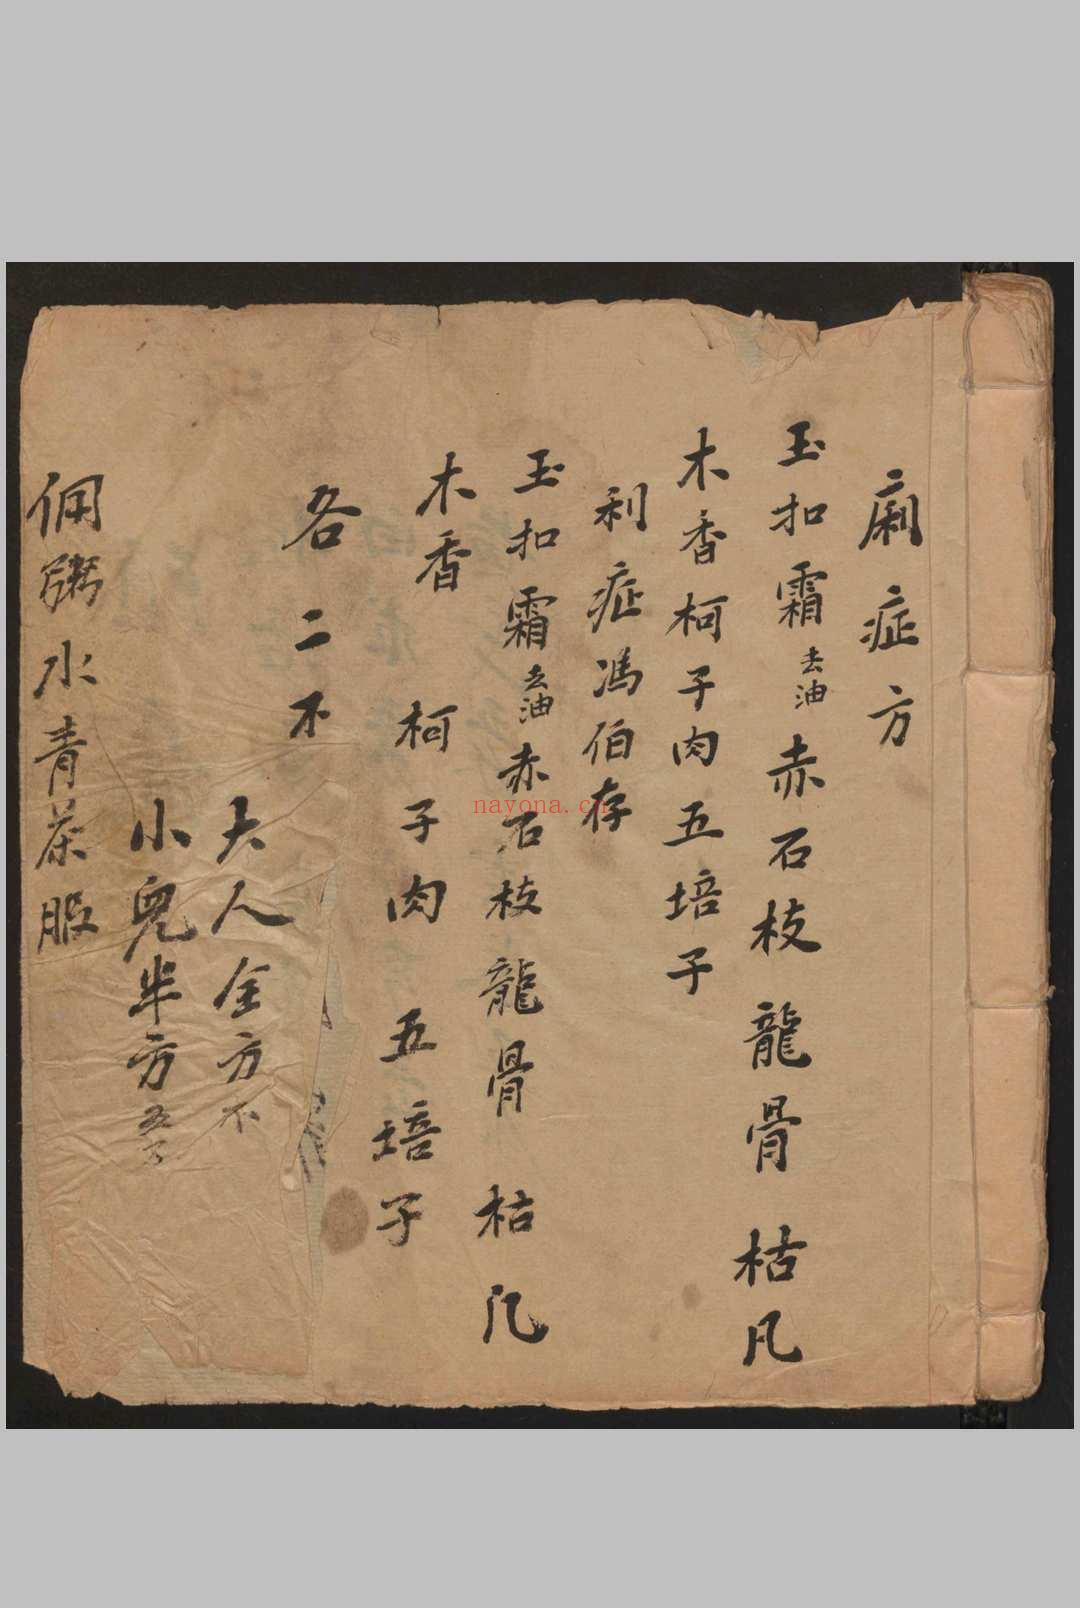 廁症方
玉扣霜去油赤石枝龍骨枯凡
木香柯子肉五培子
利症馮伯存
玉扣霜去油赤石枝龍骨枯凡
木香柯子肉五培子
各二不
大人全方不
小兒半方
佣粥水青茶服
nayona.cn